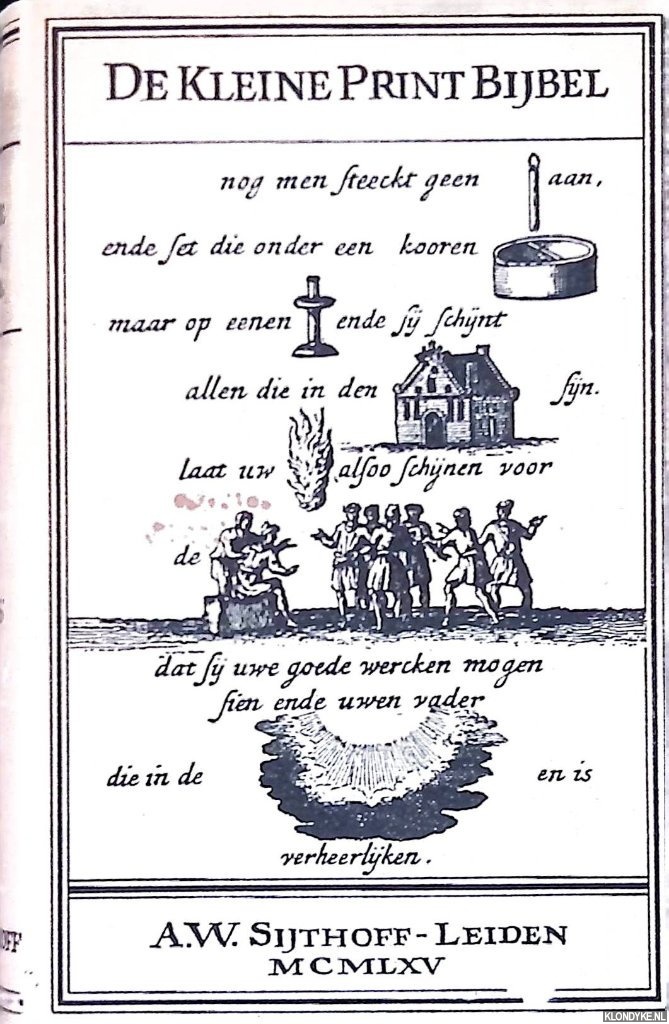 DE KLEINE PRINT BIJBEL
nog men steeckt geen aan,
ende set die onder een kooren
maar op eenen ende sij schijnt
allen die in den sijn.
laat uw alsoo schijnen voor
de
dat sij uwe goede wercken mogen
sien ende uwen vader
die in de en is
verheerlijken.
A.W. SIJTHOFF-LEIDEN
MCMLXV
KLONDYKE.NL